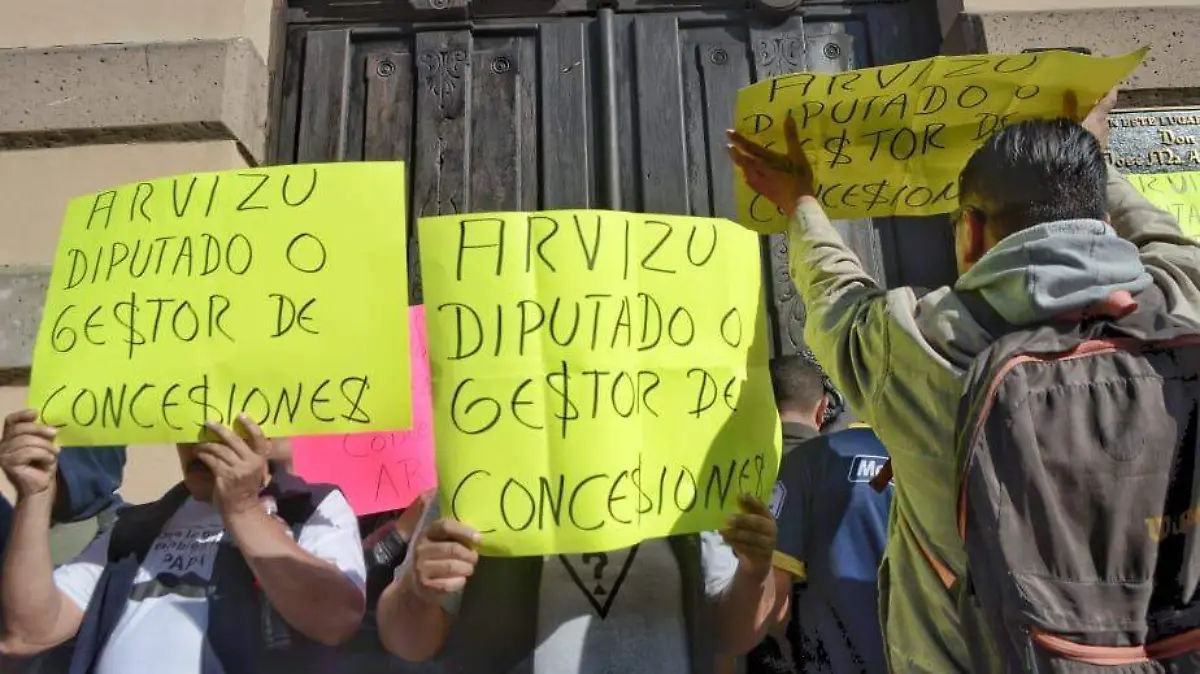 ARVIZU
DIPUTADO O
GE$TOR DE
CONCE$IONE$
ARVIZU
DIPUTADO O
GE$TOR DE
CONCE$IONE$
ARVIZU
DIPUTADO O
GE$TOR DE
CONCE$IONE$
AR
N ESTE LUGAR
Don
José Ma. A
?